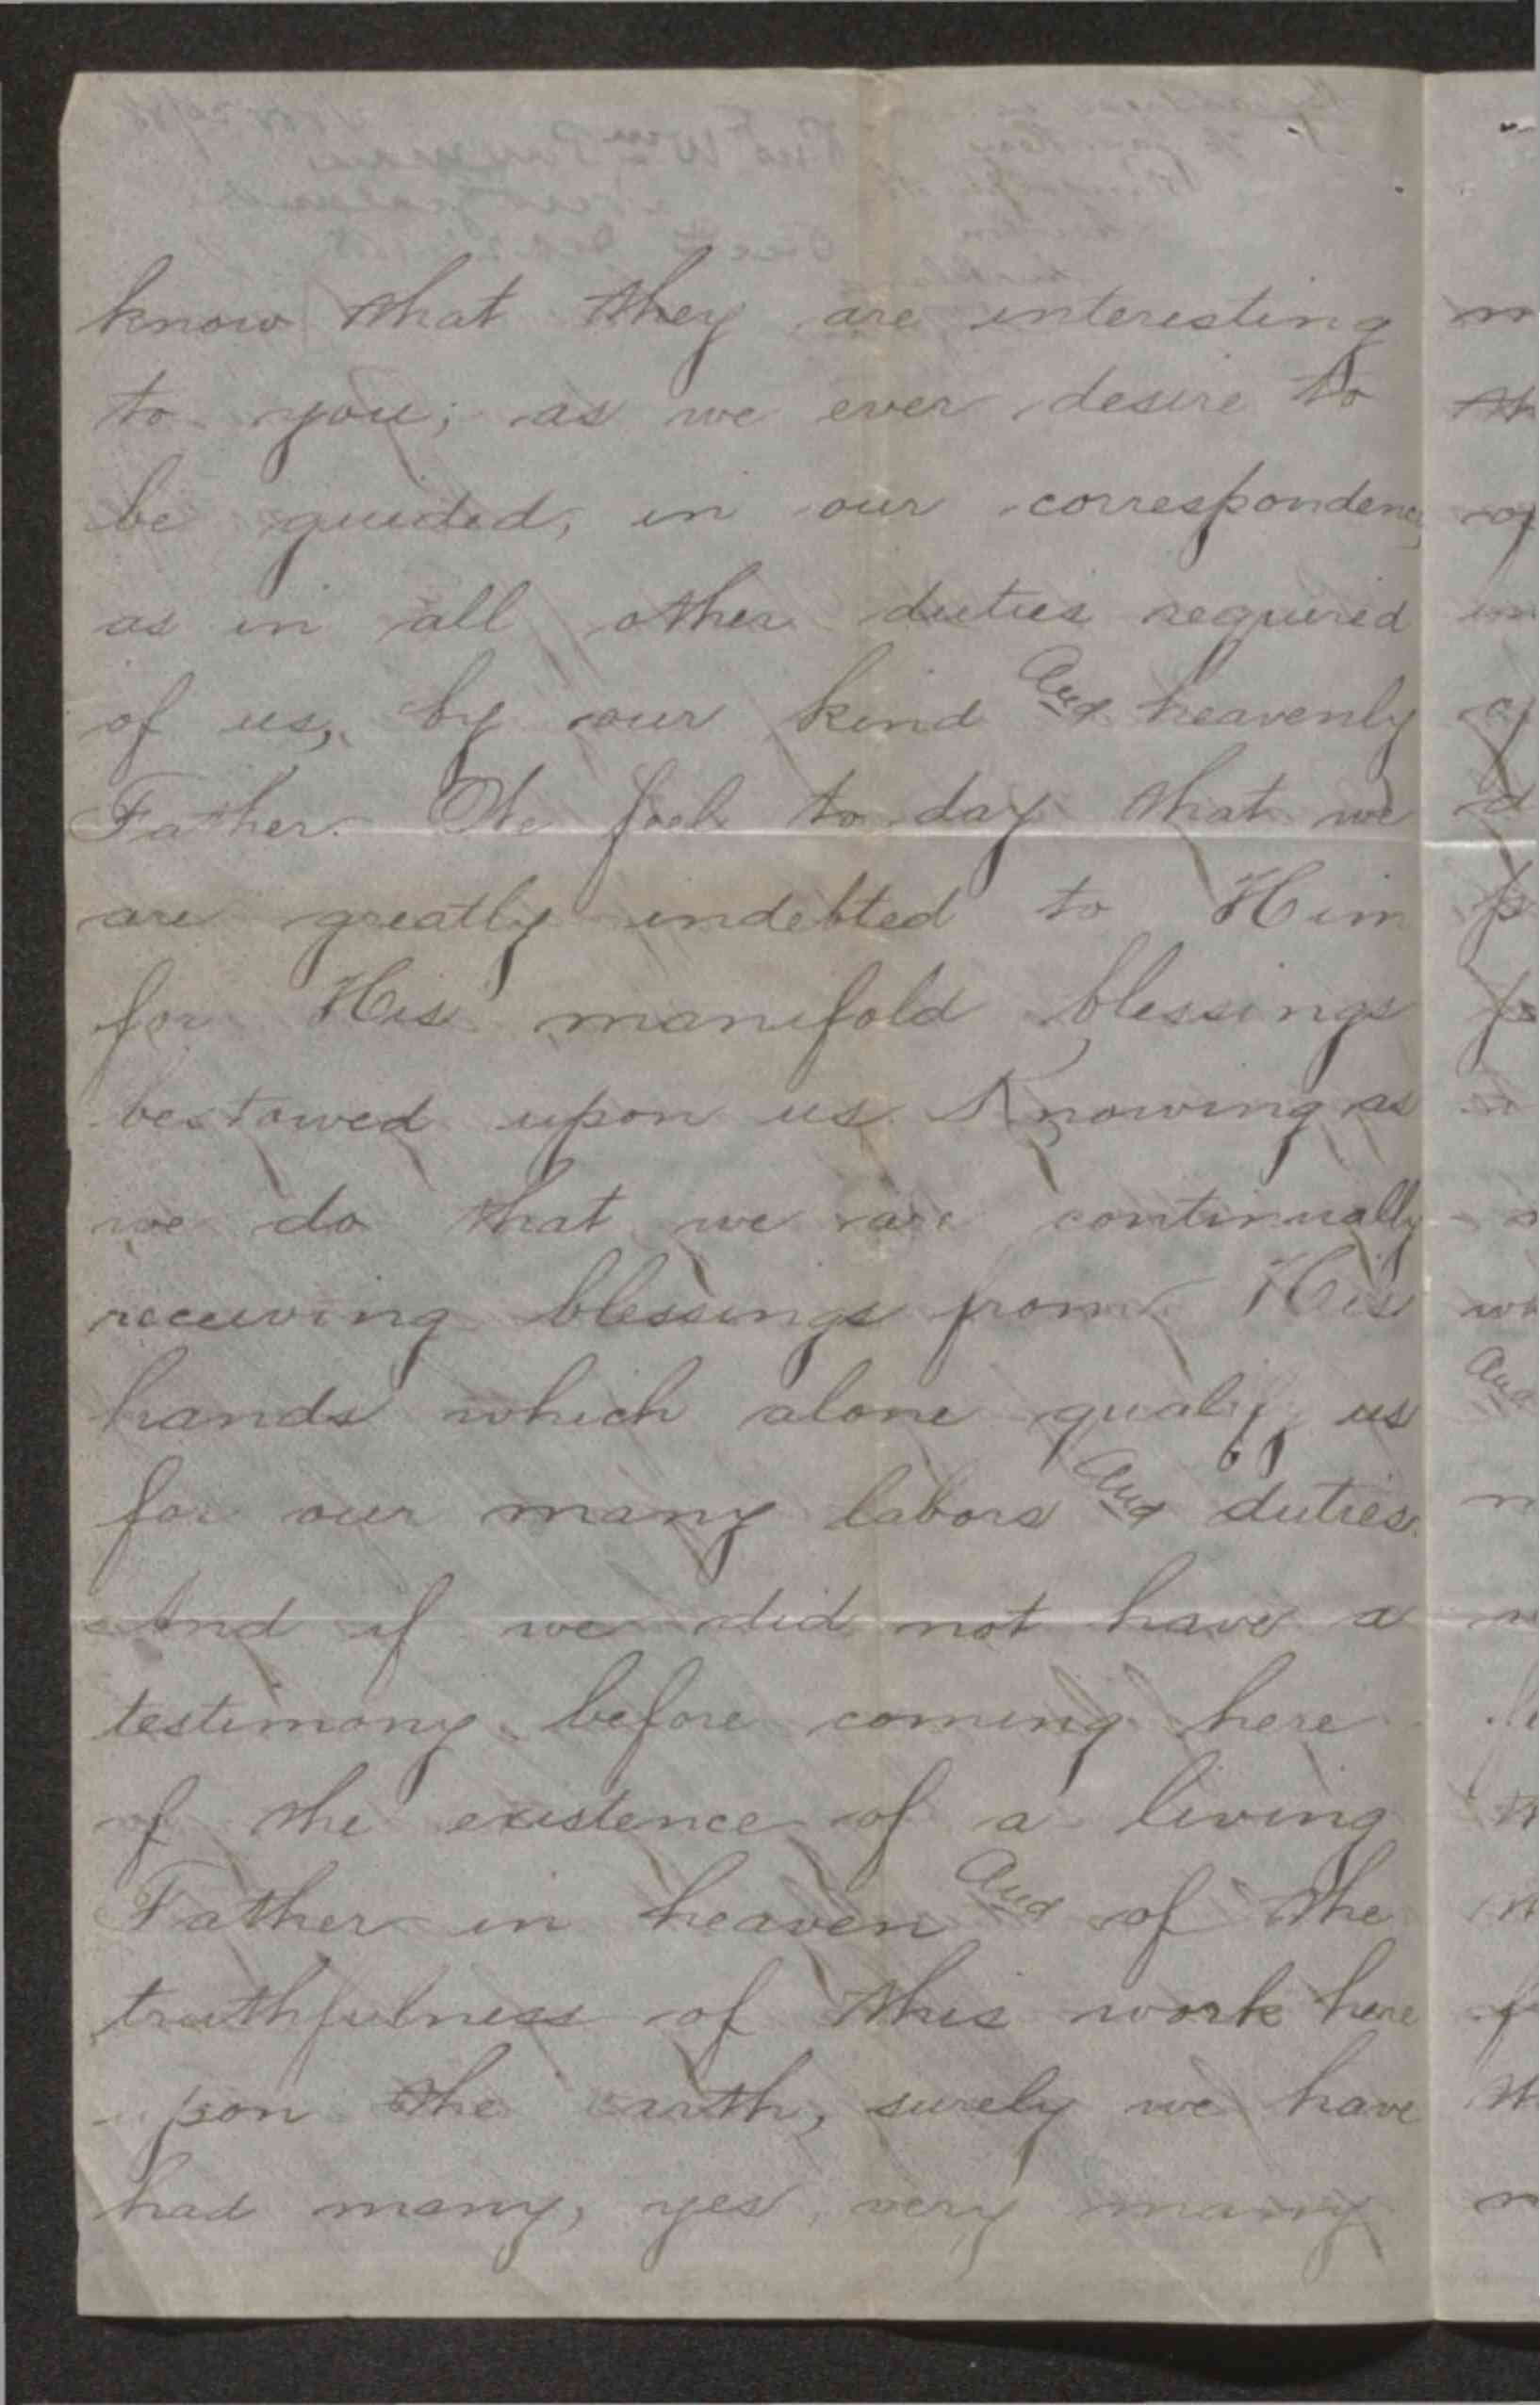 know that they are interesting
to you; as we ever desire to
be guided, in our correspondency
as in all other duties required
of us, by our kind and heavenly
Father. We feel to day that we
are greatly indebted to Him
for His manifold blessings
bestowed upon us Knowing as
we do that we are continually
receiving blessings from His
hands which alone qualify us
for our many labors and duties.
And if we did not have a
testimony before coming here
of the existence of a living
Father in heaven and of the
truthfulness of this work here
upon the earth, surely we have
had many, yes, very many